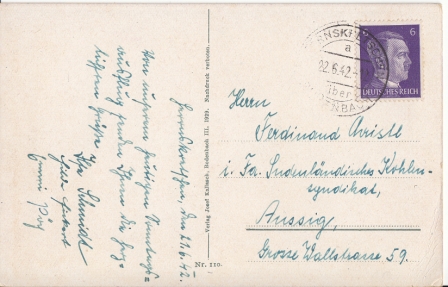 den 21.6.42.
Von unserem heutigen Sonntags-
ausflug senden Ihnen die herz-
lichsten Grüße
Ida Schmidt
Verlag Josef Kalbach, Bodenbach III. 1929. Nachdruck verboten.
Nr. 110.
6
DEUTSCHES REICH
a
22.6.42
über
Herrn
Ferdinand Christl
i. Fa. Sudenländisches Kohlen-
syndikat,
Aussig,
Grosse Wallstrasse 59.